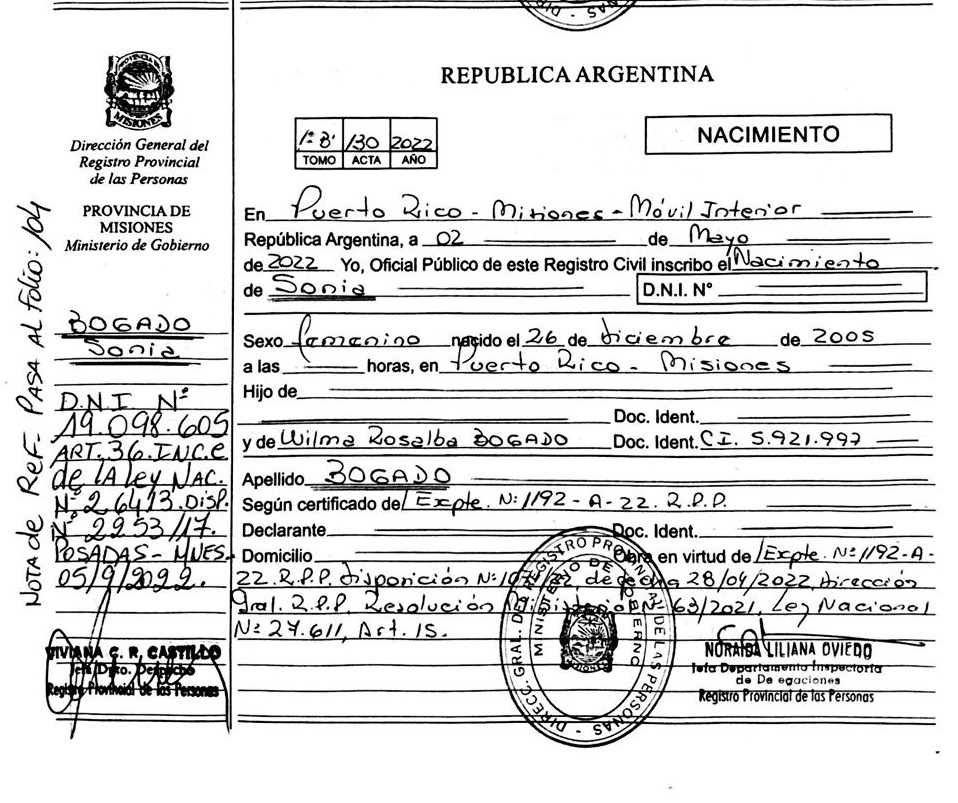 REPUBLICA ARGENTINA
PROVINCIA DE
MISIONES
Dirección General del
Registro Provincial
de las Personas
PROVINCIA DE
MISIONES
Ministerio de Gobierno
NOTA de ReF. PASA AL Folio: 104
BOGADO
Sonia
D.N.I Nº
19.098.605
ART. 36. INC. c
de LA Ley NAC.
Nº 26413. DISP.
Nº 2253/17.
POSADAS - MNES-
05/9/2022.
VIVIANA C. R. CASTILLO
Jefa Dpto. Despacho
Registro Provincial de las Personas
1º B' 130 2022
TOMO ACTA AÑO
NACIMIENTO
En Puerto Rico - Misiones - Móvil Interior
República Argentina, a 02 de Mayo
de 2022 Yo, Oficial Público de este Registro Civil inscribo el Nacimiento
de Sonia D.N.I. Nº
Sexo femenino nacido el 26 de diciembre de 2005
a las horas, en Puerto Rico - Misiones
Hijo de
Doc. Ident.
y de Wilma Rosalba BOGADO Doc. Ident. C.I. 5.921.997
Apellido BOGADO
Según certificado de Expte. Nº 1192-A-22. R.P.P.
Declarante Doc. Ident.
Domicilio Obra en virtud de Expte. Nº 1192-A-
22. R.P.P, disposición Nº de fecha 28/04/2022, Dirección
Gral. R.P.P, Resolución 63/2021, Ley Nacional
Nº 27.611, Art. 15.
DIRECC. GRAL. DEL REGISTRO PROVINCIAL DE LAS PERSONAS
MINISTERIO DE GOBIERNO
NORAIDA LILIANA OVIEDO
Jefa Departamento Inspectoria
de De egaciones
Registro Provincial de las Personas